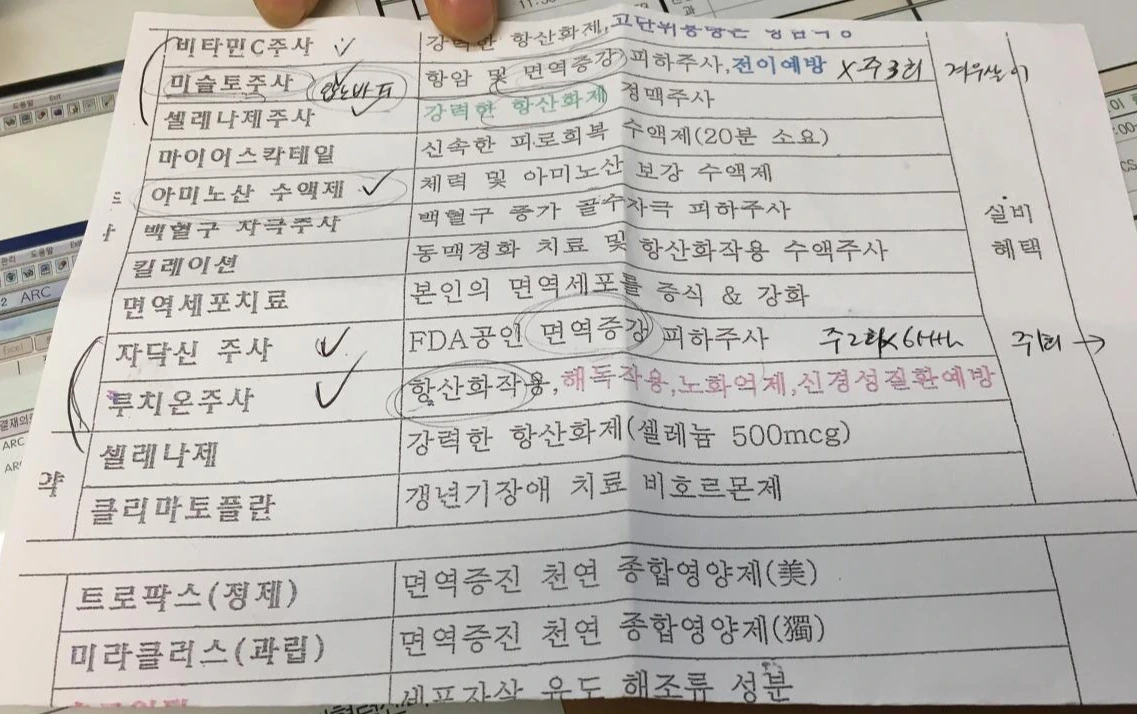 비타민C주사 강력한 항산화제,고단위
미슬토주사 항암 및 면역증강 피하주사,전이예방 X주3회 겨우살이
셀레나제주사 강력한 항산화제 정맥주사
마이어스칵테일 신속한 피로회복 수액제(20분 소요)
아미노산 수액제 체력 및 아미노산 보강 수액제
백혈구 자극주사 백혈구 증가 골수자극 피하주사
킬레이션 동맥경화 치료 및 항산화작용 수액주사
실비
혜택
면역세포치료 본인의 면역세포를 증식 & 강화
자닥신 주사 FDA공인 면역증강 피하주사 주2회 주1회 →
루치온주사 항산화작용,해독작용,노화억제,신경성질환예방
약
셀레나제 강력한 항산화제(셀레늄 500mcg)
클리마토플란 갱년기장애 치료 비호르몬제
트로팍스(정제) 면역증진 천연 종합영양제(美)
미라클러스(과립) 면역증진 천연 종합영양제(獨)
세포자살 유도 해조류 성분
도움말 Exit
2 ARC
Excel
ARC